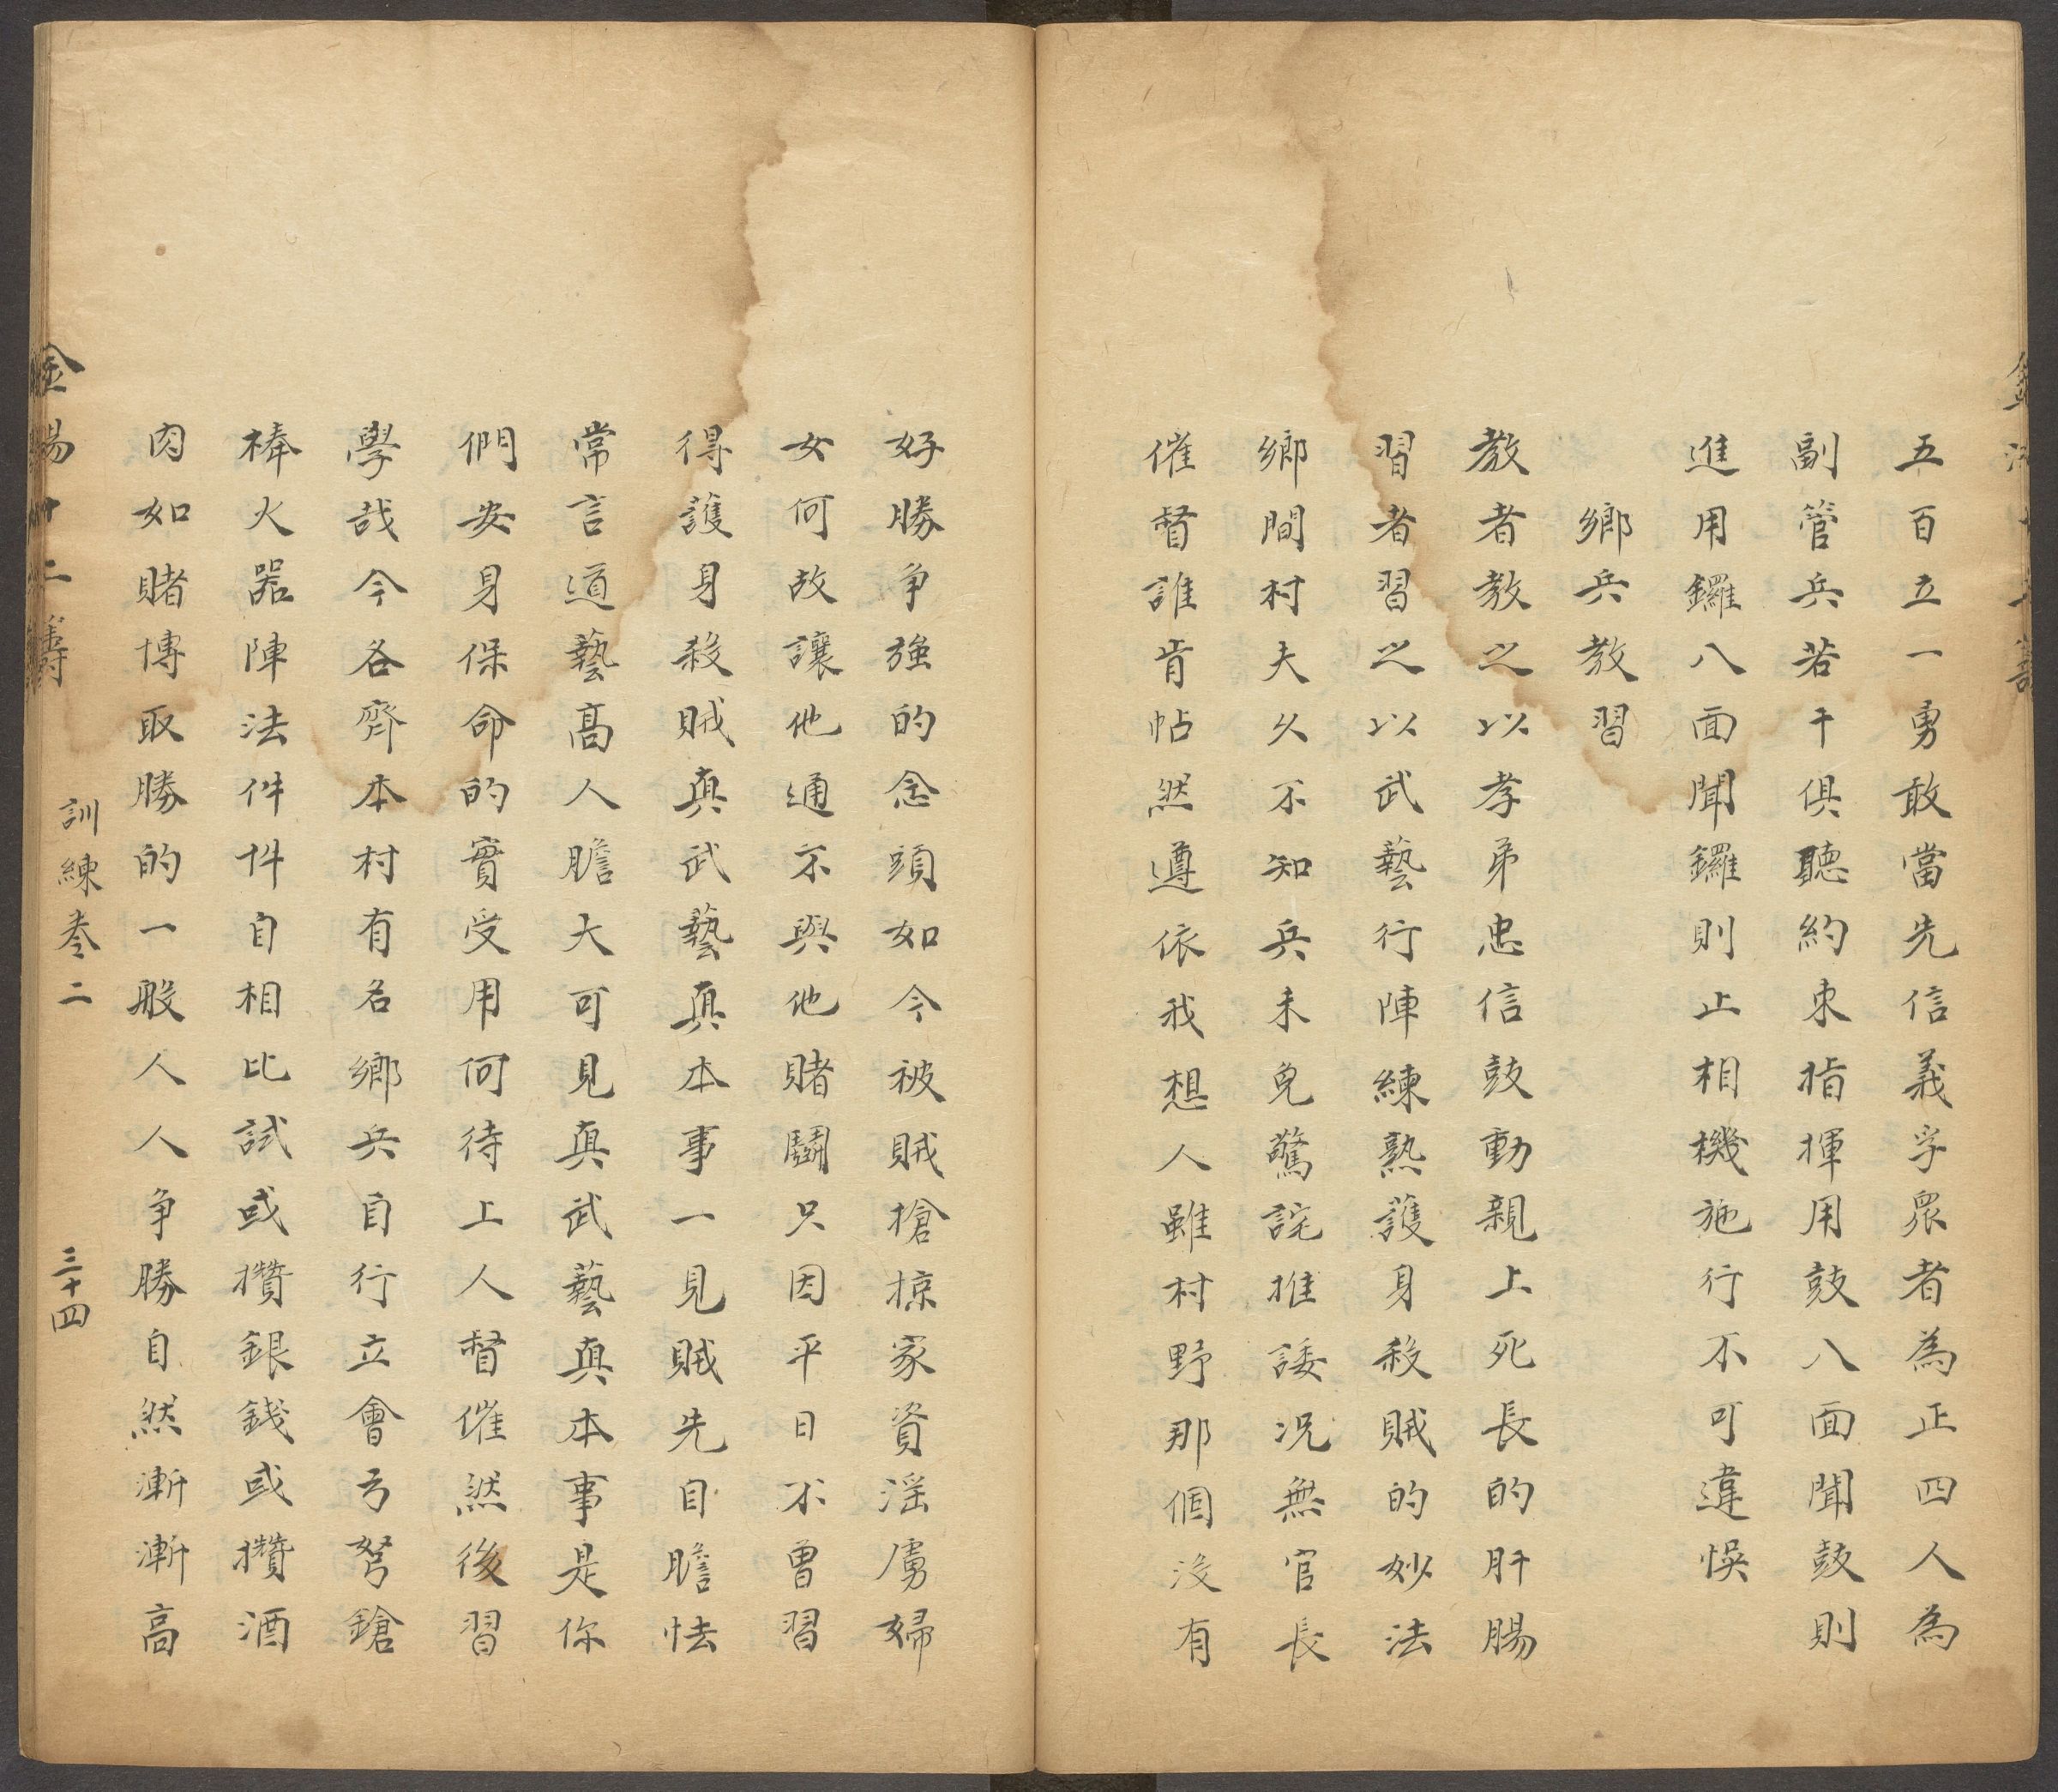 五百立一勇敢當先信義孚衆者為正四人為
副管兵若干俱聽約束指揮用鼓八面聞鼓則
進用鑼八面聞鑼則止相機施行不可違悞
鄉兵教習
教者教之以孝弟忠信鼓動親上死長的肝腸
習者習之以武藝行陣練熟護身殺賊的妙法
鄉間村夫久不知兵未免驚詫推諉况無官長
催督誰肯帖然遵依我想人雖村野那個沒有
好勝争強的念頭如今被賊搶掠家資滛虜婦
女何故讓他通不與他賭鬪只因平日不曾習
得護身殺賊真武藝真本事一見賊先自膽怯
常言道藝高人膽大可見真武藝真本事是你
們安身保命的實受用何待上人督催然後習
學哉今各齊本村有名鄉兵自行立會弓弩鎗
棒火器陣法件件自相比試或攢銀錢或攢酒
肉如賭博取勝的一般人人争勝自然漸漸高
金湯十二籌
訓練卷二
三十四